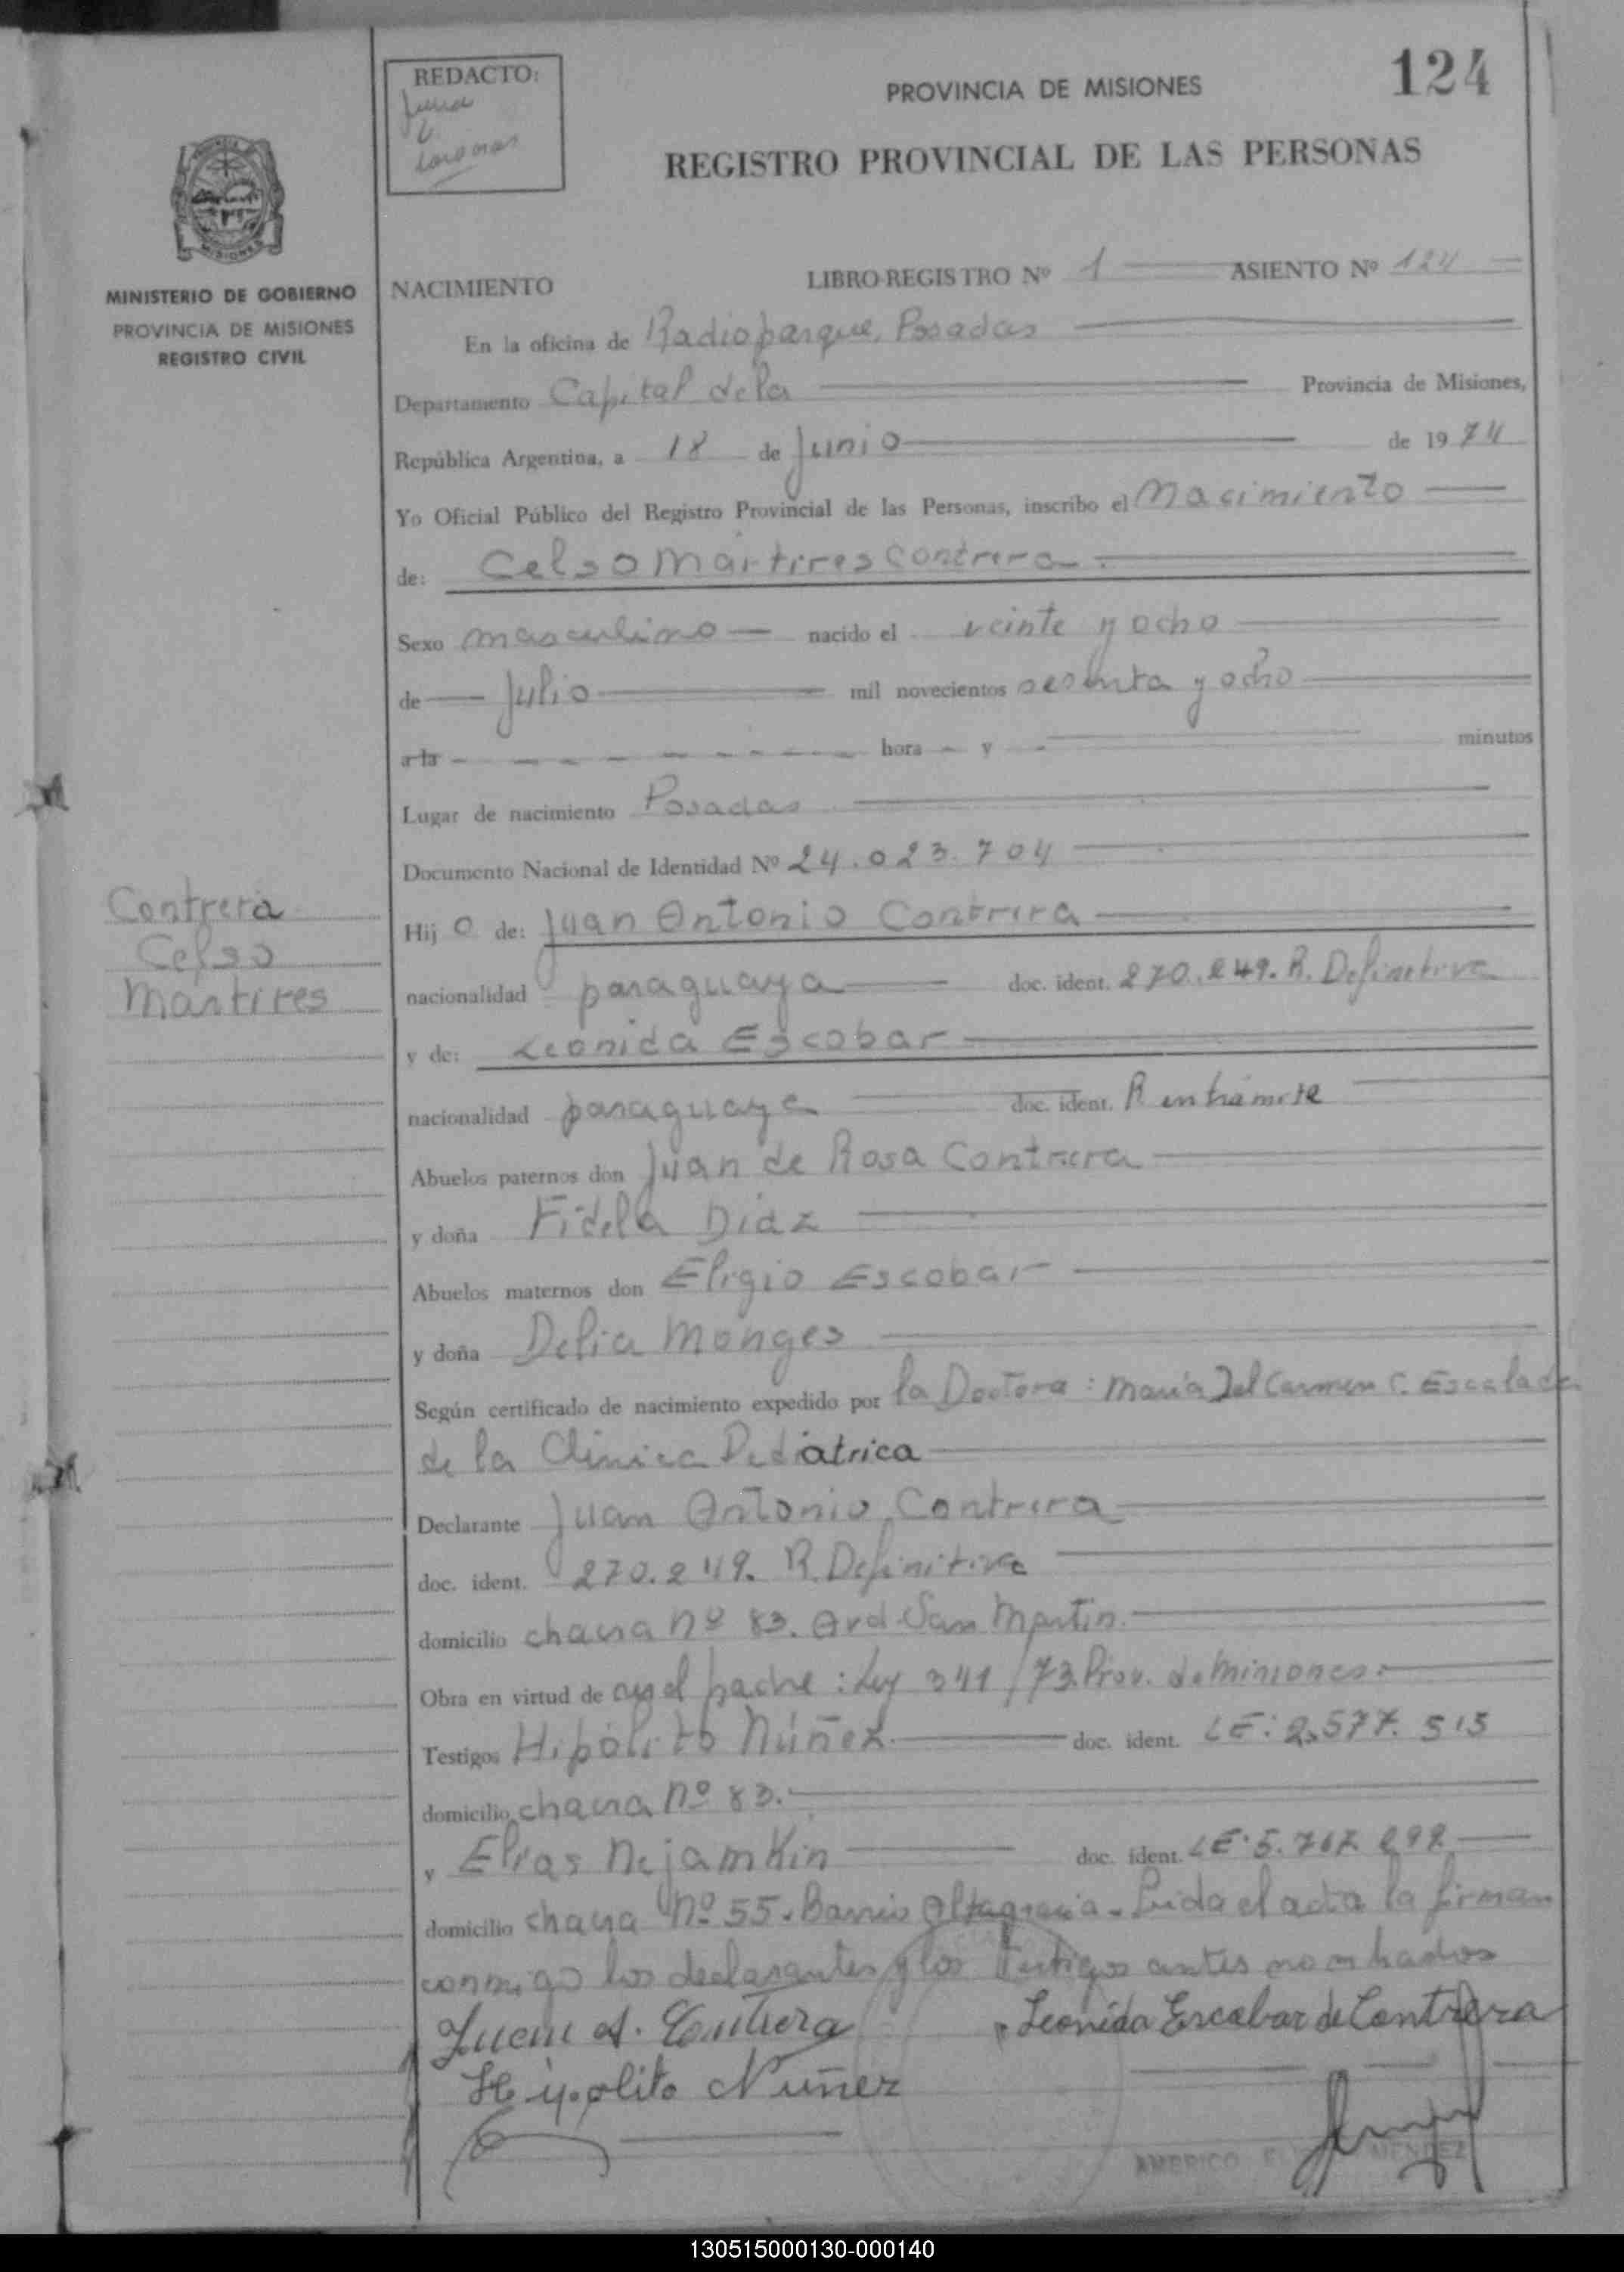 REDACTO:
PROVINCIA DE MISIONES
124
REGISTRO PROVINCIAL DE LAS PERSONAS
MISIONES
MINISTERIO DE GOBIERNO
PROVINCIA DE MISIONES
REGISTRO CIVIL
NACIMIENTO LIBRO-REGISTRO Nº 1 ASIENTO Nº 124
En la oficina de Radioparque, Posadas
Departamento Capital dela Provincia de Misiones,
República Argentina, a 18 de Junio de 1974
Yo Oficial Público del Registro Provincial de las Personas, inscribo el Nacimiento
de: Celso Martires Contrera.
Sexo masculino nacido el veinte y ocho
de Julio mil novecientos sesenta y ocho
a la hora y minutos
Lugar de nacimiento Posadas
Documento Nacional de Identidad Nº 24.023.704
Contrera
Celso
Martires
Hij o de: Juan Antonio Contrera
nacionalidad paraguaya doc. ident. 270.249. R. Definitiva
y de: Leonida Escobar
nacionalidad paraguaya doc. ident. R en trámite
Abuelos paternos don Juan de Rosa Contrera
y doña Fidela Diaz
Abuelos maternos don Eligio Escobar
y doña Delia Monges
Según certificado de nacimiento expedido por la Doctora: María Del Carmen C. Escalada
de la Clinica Pediatrica
Declarante Juan Antonio Contrera
doc. ident. 270.249. R. Definitiva
domicilio chacra nº 83. Avd. San Martin.
Obra en virtud de el padre: Ley 341/73. Prov. de Misiones.
Testigos Hipólito Núñez doc. ident. LE: 2.577.515
domicilio chacra nº 83.
y Elias Nejamkin doc. ident. LE: 5.767.
domicilio chacra Nº 55. Barrio Altagracia. Leida el acta la firman
conmigo los declarantes y los testigos antes nombrados
Juan A. Contrera
Leonida Escobar de Contrera
Hipolito Nuñez
AMERICO MENDEZ
130515000130-000140